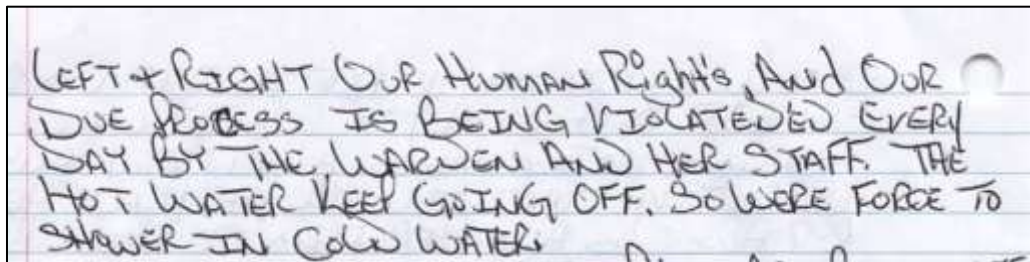 LEFT + RIGHT OUR HUMAN Right's, And OUR
DUE PROCESS IS BEING VIOLATEDED EVERY
DAY BY THE WARDEN AND HER STAFF. THE
HOT WATER KEEP GOING OFF. SO WERE FORCE TO
SHOWER IN COLD WATER.